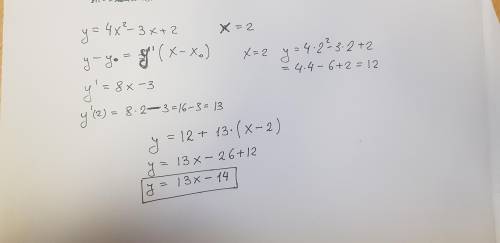 y = 4x² - 3x + 2    x = 2
y - y₀ = y' (x - x₀)    x = 2    y = 4·2² - 3·2 + 2
= 4·4 - 6 + 2 = 12
y' = 8x - 3
y'(2) = 8·2 - 3 = 16 - 3 = 13
y = 12 + 13·(x - 2)
y = 13x - 26 + 12
y = 13x - 14